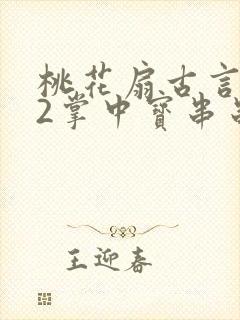 桃花扇古言
2掌中寳串
王迎春